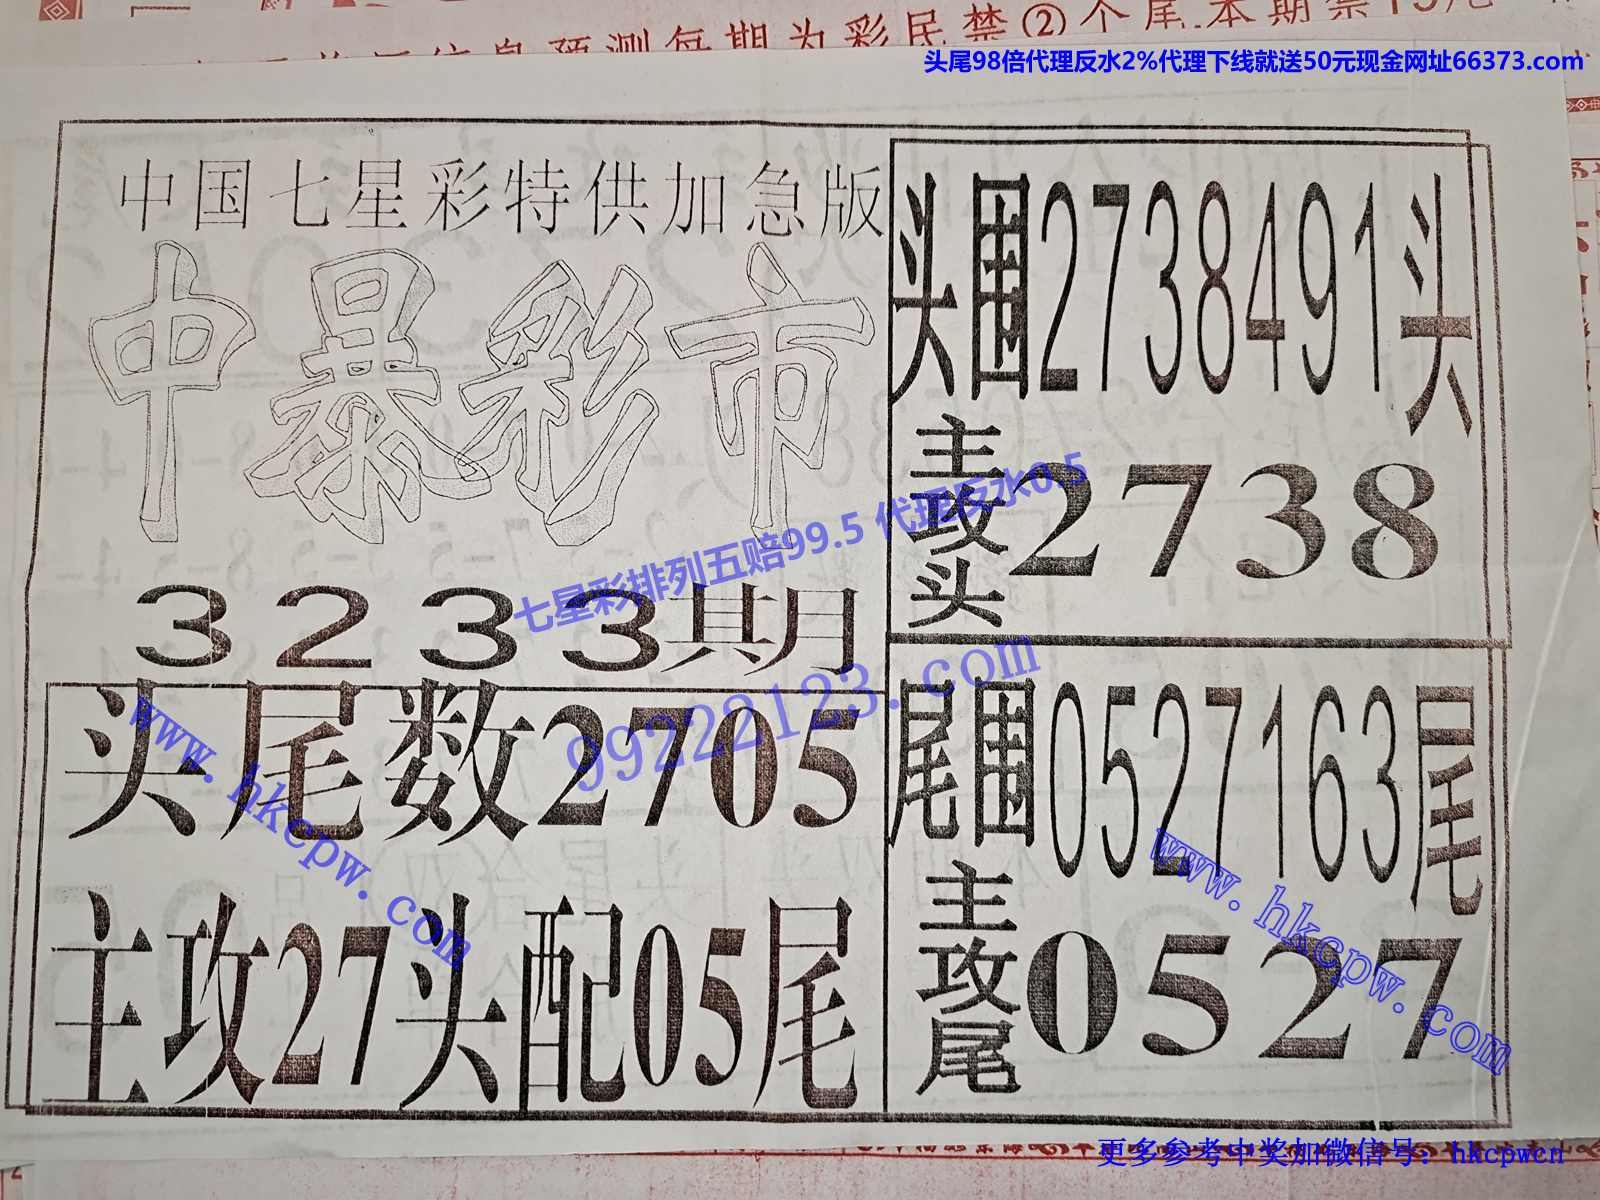 信息预测每期为彩民禁②个尾.本期禁15尾
头尾98倍代理反水2%代理下线就送50元现金网址66373.com
中国七星彩特供加急版
中暴彩市
3233期
头尾数2705
主攻27头配05尾
头围2738491头
主攻头2738
尾围0527163尾
主攻尾0527
七星彩排列五赔99.5 代理反水0.5
99222123.com
www.hkcpw.com
www.hkcpw.com
更多参考中奖加微信号: hkcpwcn